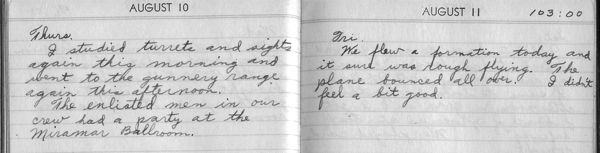 AUGUST 10
Thurs.
I studied turrets and sights
again this morning and
went to the gunnery range
again this afternoon.
The enlisted men in our
crew had a party at the
Miramar Ballroom.
AUGUST 11 103:00
Fri.
We flew a formation today and
it sure was rough flying. The
plane bounced all over. I didn't
feel a bit good.